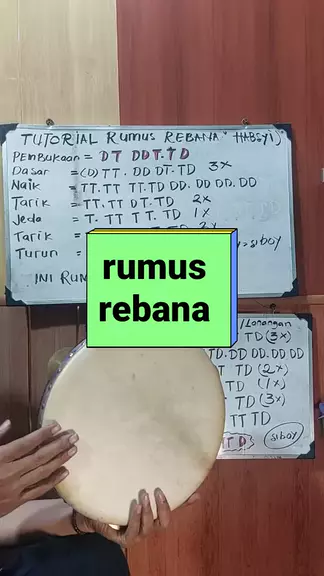 TUTORIAL RUMUS REBANA "HABSYI"
PEMBUKAAN = DT DDT.TD
Dasar = (D) TT. DD DT. TD 3x
Naik = TT. TT TT.TD DD. DD DD. DD
Tarik = TT. TT DT. TD 2x
Jeda = T. TT T T. TD 1x
Tarik =
Turun =
siboy
INI RUM
rumus
rebana
/Lonongan
TD (3x)
TD. DD DD. DD DD
T TD (2x)
TD (1x)
T TD (3x)
TT TD
TD
siboy